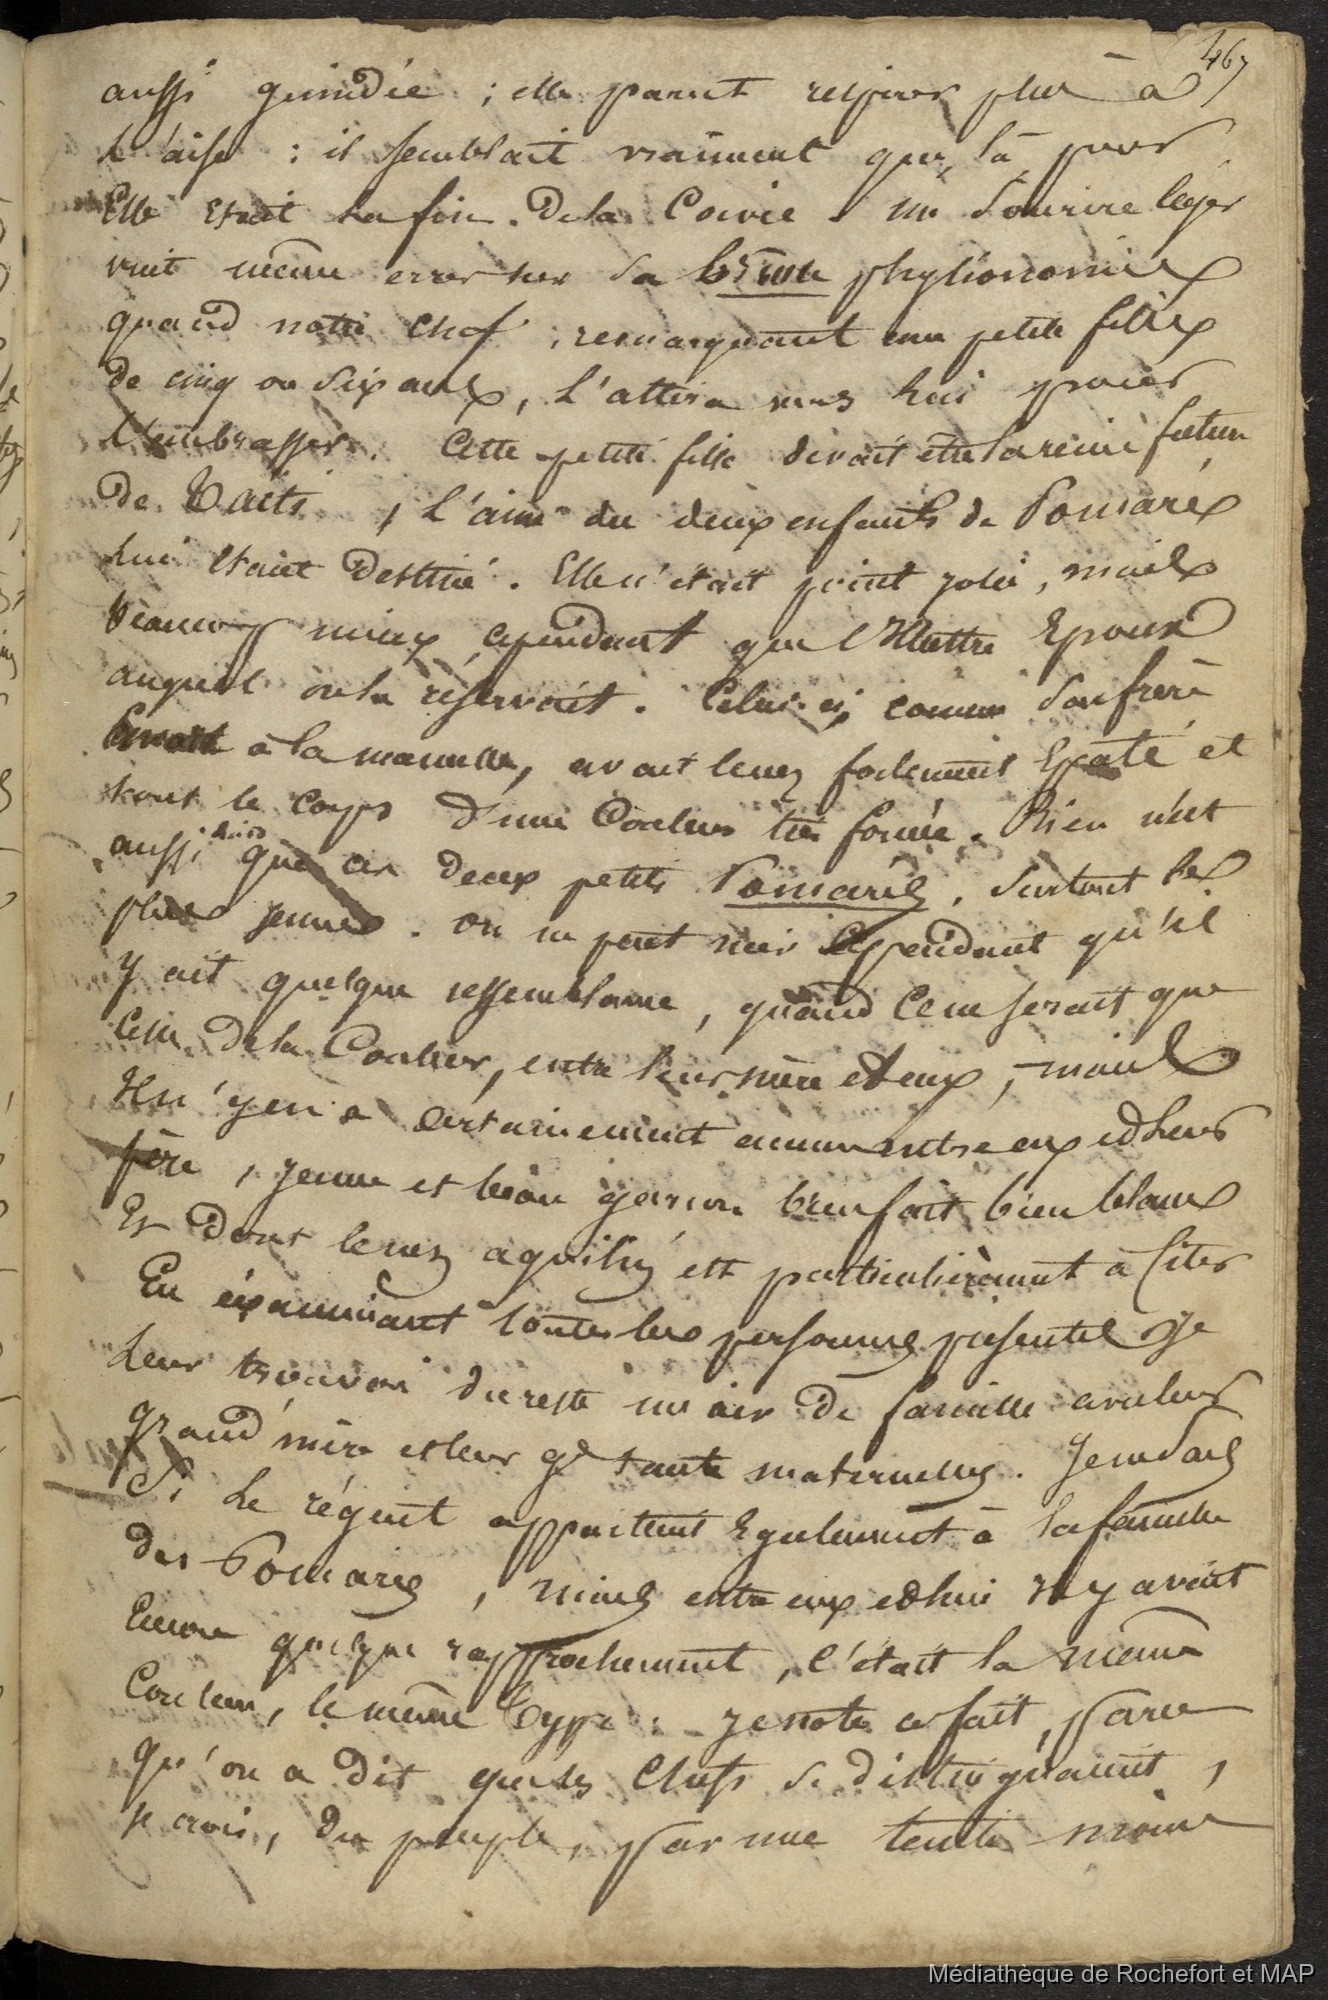 467
aussi guindée ; elle parut respirer plus à
l'aise : il semblait vraiment que, là, pour
Elle était la fin de la Corvée. un sourire léger
vint même errer sur sa brune physionomie
quand notre chef, remarquant une petite fille
de cinq ou six ans, l'attira vers lui pour
l'embrasser. Cette petite fille devait être la reine future
de Taïti, l'ainé des deux enfants de Pomaré
lui étant destiné. Elle n'était point jolie, mais
beaucoup mieux cependant que l'Illustre Epoux
auquel on la réservait. Celui-ci, comme son frère
à la mamelle, avait le nez fortement Epaté et
tout le corps d'une Couleur très foncée. Rien n'est
aussi noir que ces deux petits Pomarés, surtout le
plus jeune. On ne peut nier Cependant qu'il
y ait quelque ressemblance, quand Ce ne serait que
Celle de la Couleur, entre leur mère et eux, mais
Il n'y en a certainement aucune entre eux et leur
père, jeune et beau garçon bien fait, bien blanc
Et dont le nez aquilin est particulièrement à Citer
En éxaminant toutes les personnes présentes je
leur trouvai du reste un air de famille avec leur
grand'mère et leur gde tante maternelles. Je ne sais
Si le régent appartient Egalement à la famille
des Pomarés, mais entre eux et lui il y avait
Encore quelque rapprochement, c'était la même
Couleur, le même type : je note ce fait, parce
qu'on a dit que les Chefs se distinguaient,
je crois, du peuple, par une teinte moins
Médiathèque de Rochefort et MAP